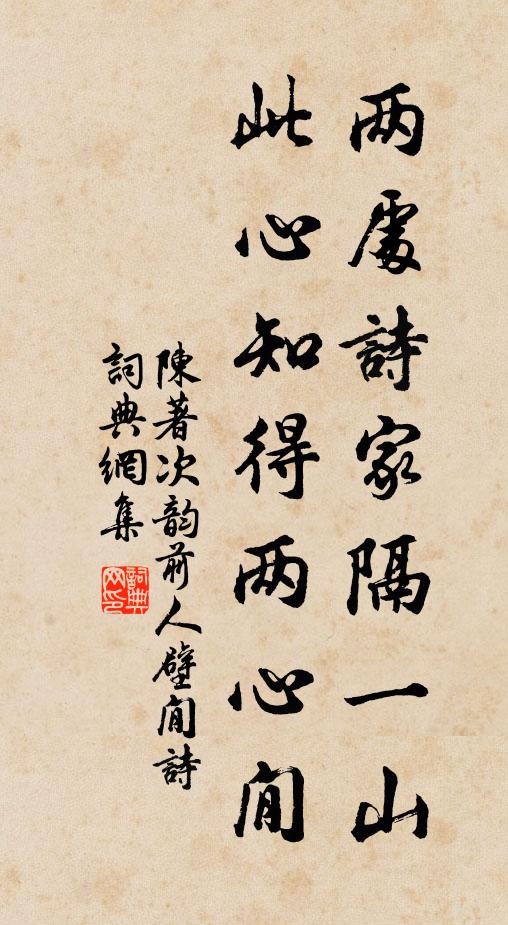 两處詩家隔一山
此心知得两心閒
陳著次韵前人壁閒詩
詞典網集
詞典网印